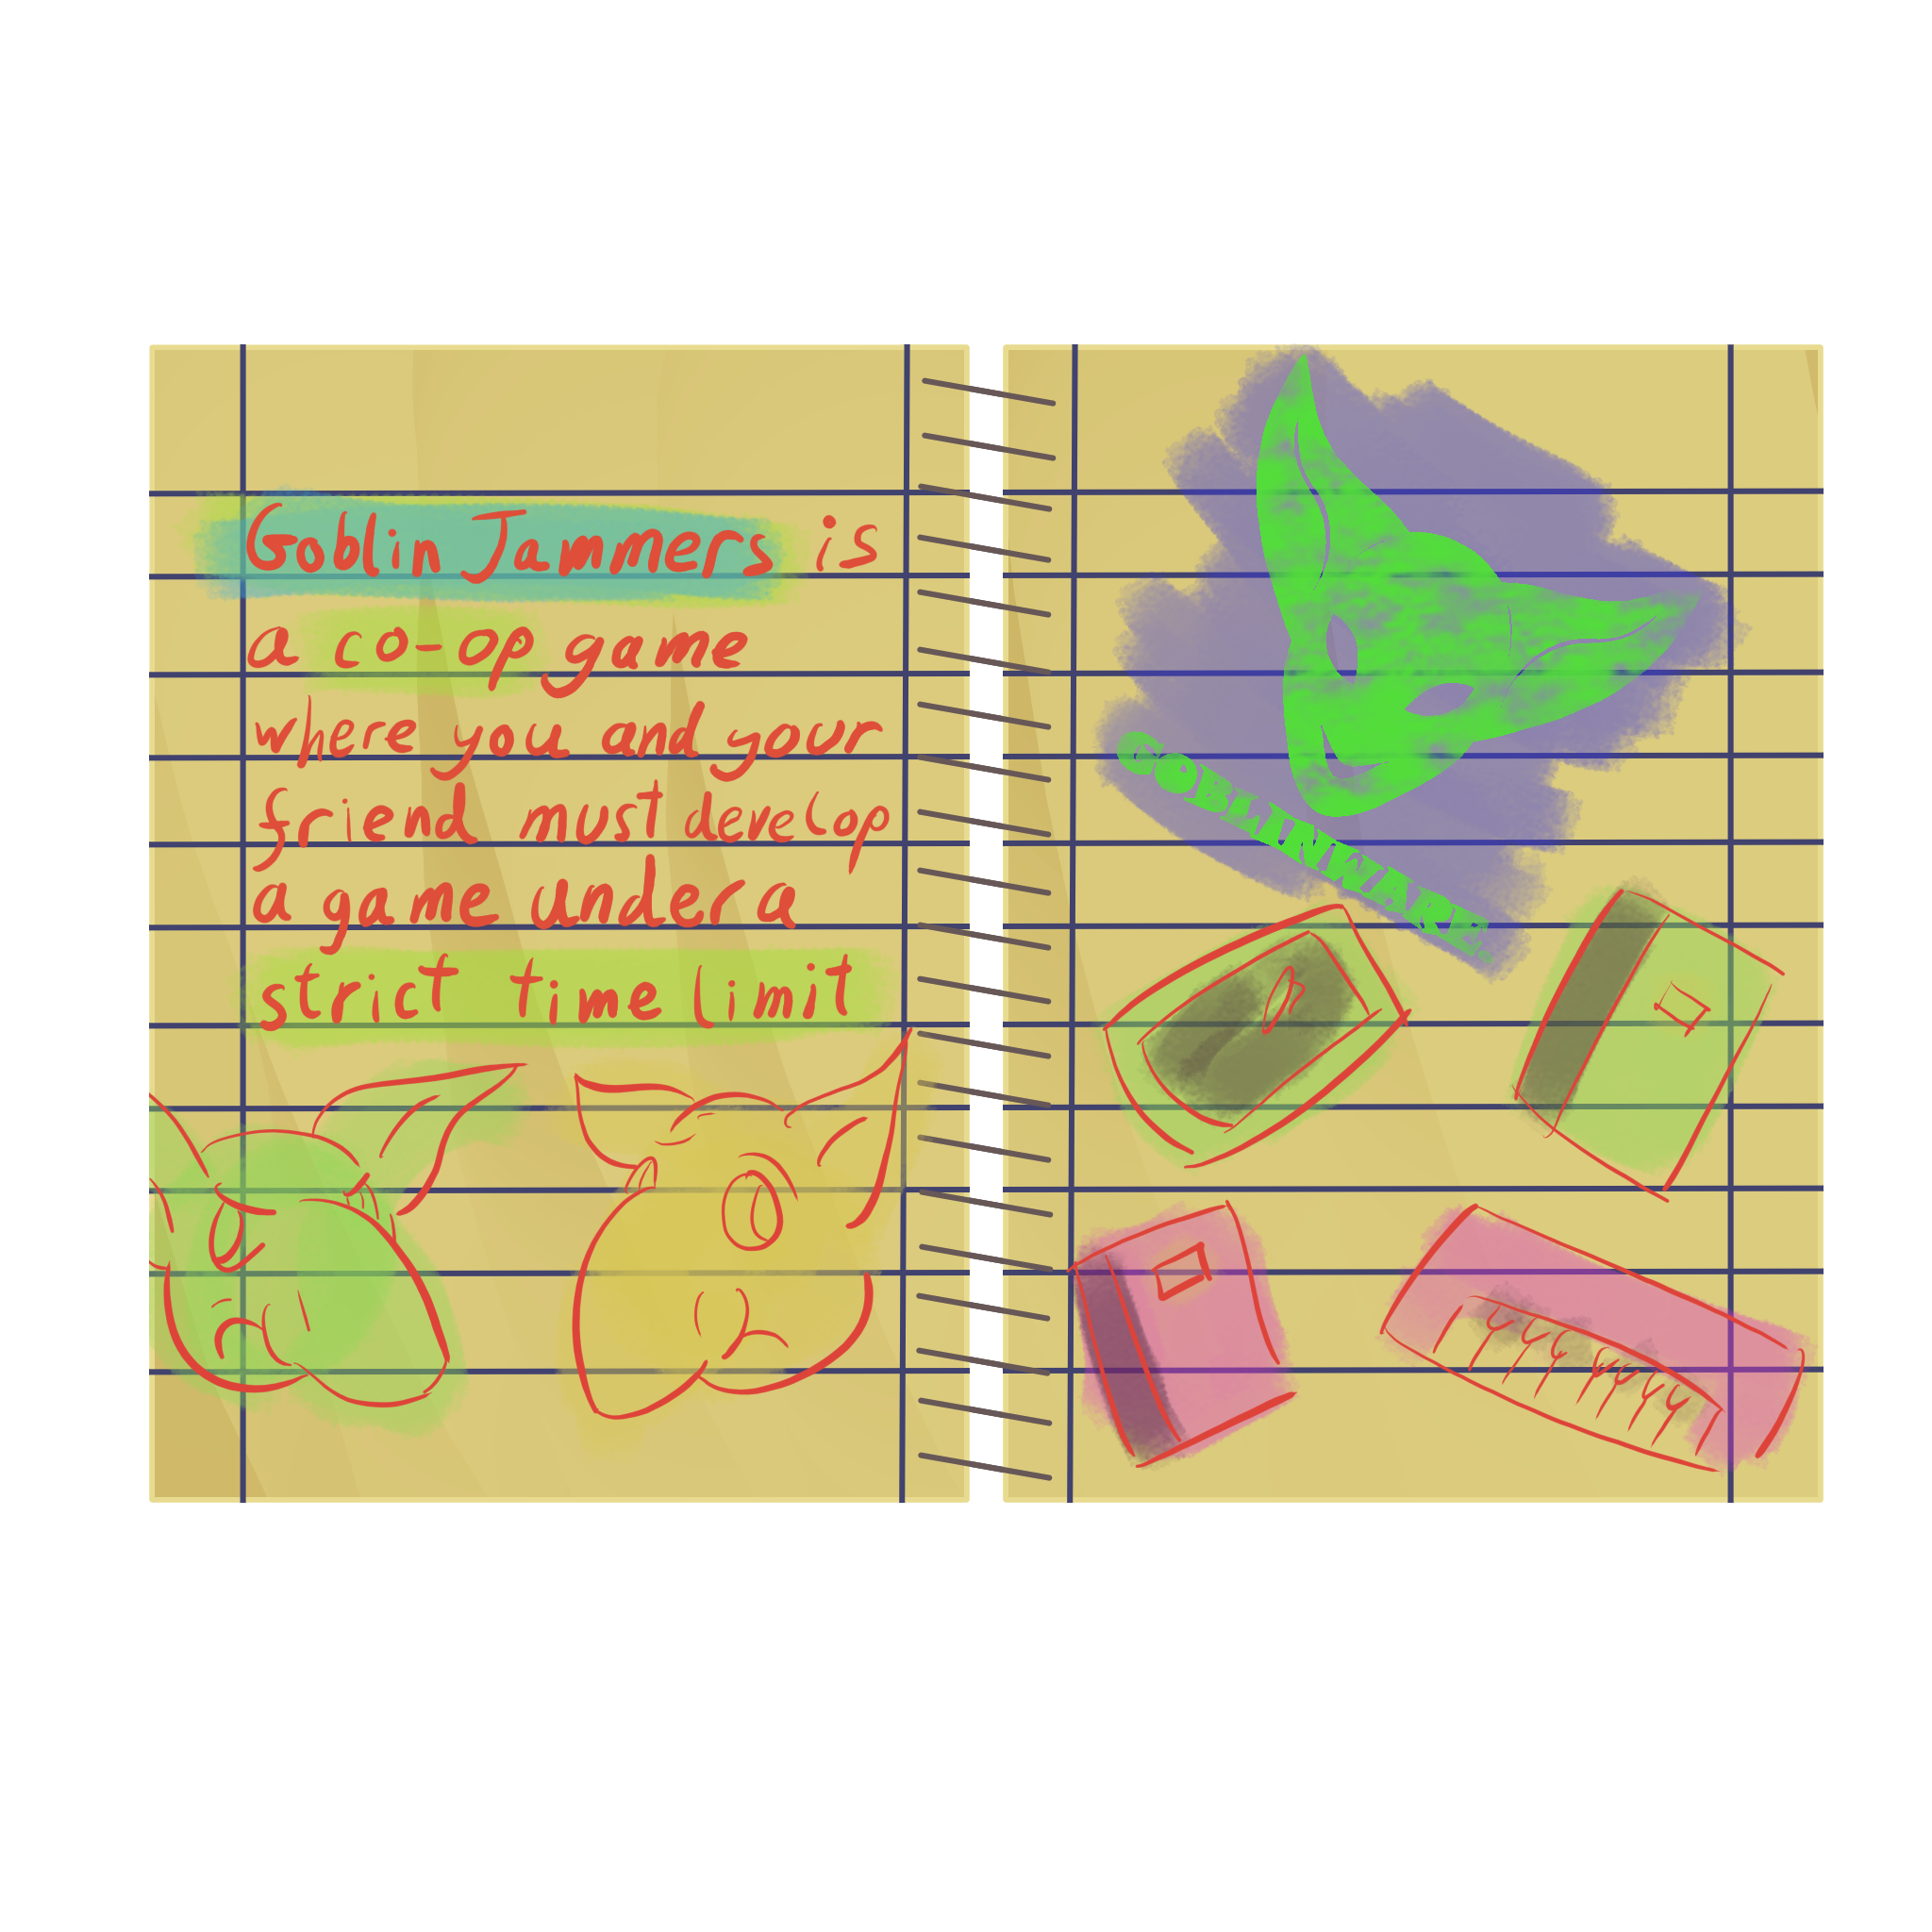 Goblin Jammers is
a co-op game
where you and your
friend must develop
a game under a
strict time limit
GOBLINWARE